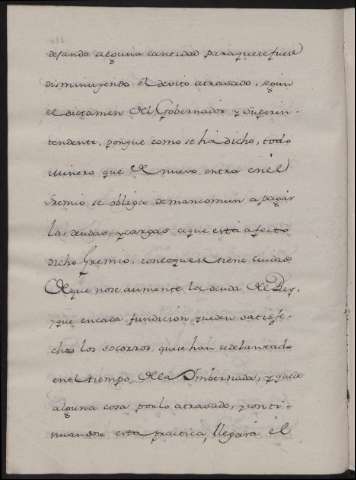 dejando alguna cantidad para que se fuese
disminuyendo el devito atrasado, segun
el dictamen del Gobernador y Superin-
tendente, porque como se há dicho, todo
Minero que de nuevo entra en él
Gremio se obliga de mancomun a pagar
las deudas, y cargas a que está afecto
dicho Gremio, con lo que se tiene cuidado
de que no se aumente la deuda del Rey,
y que en cada fundicion queden satisfe-
chos los socorros, que se han adelantado
en el tiempo de la Imbernada, y quede
alguna cosa por lo atrasado, y conti-
nuandose esta practica, llegará él